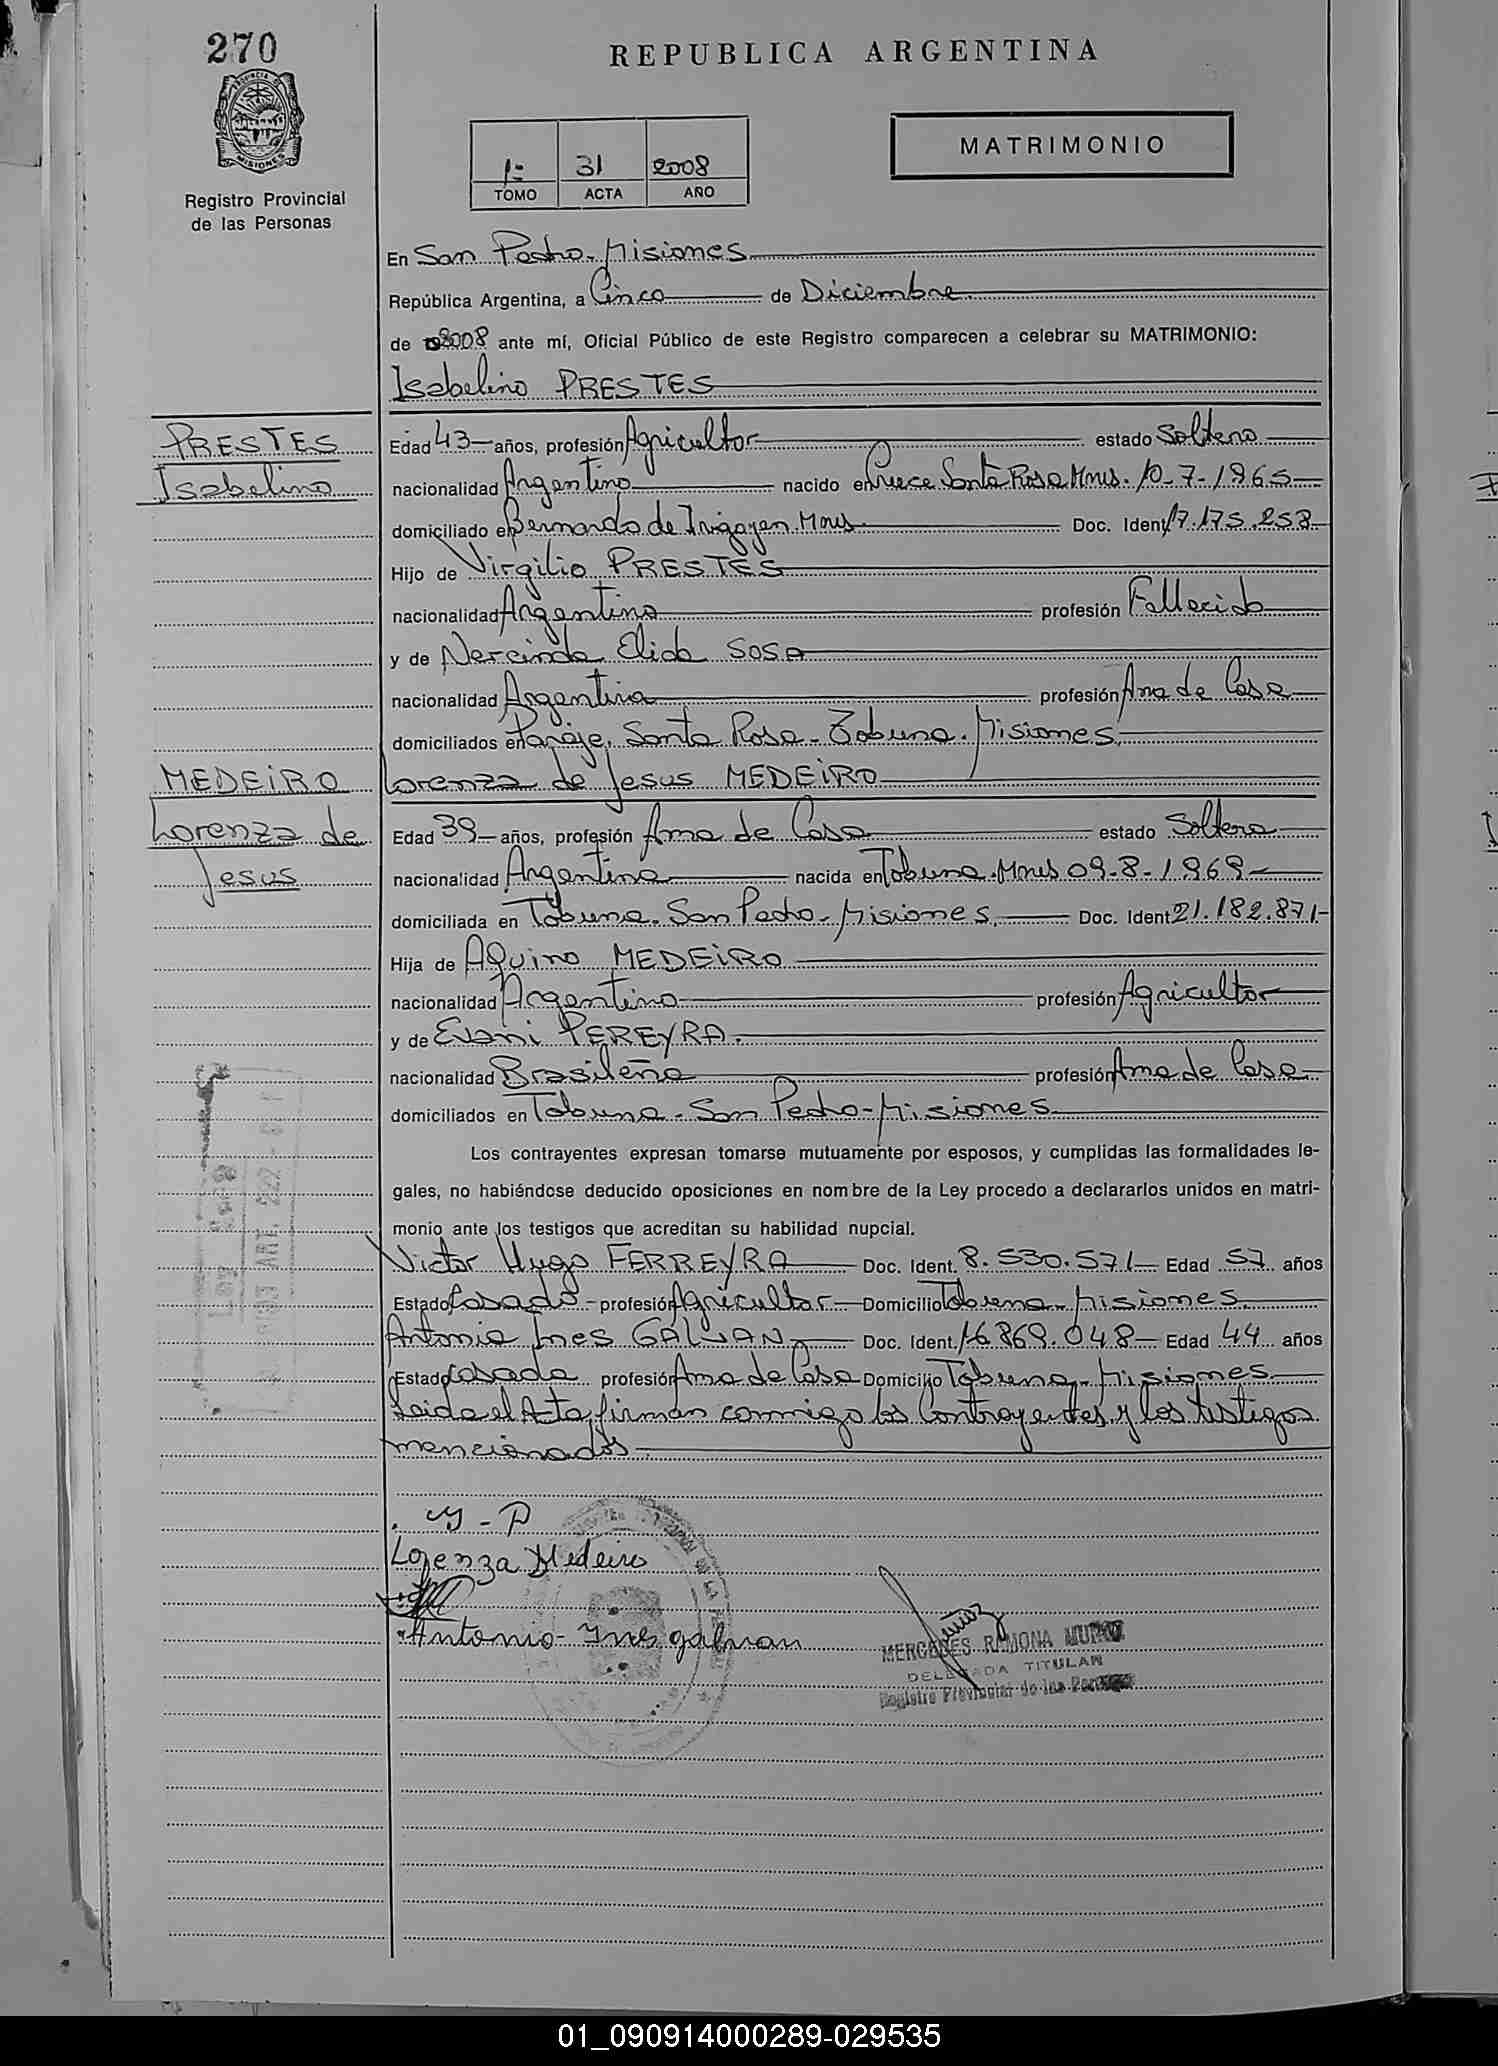 270
REPUBLICA ARGENTINA
PROVINCIA DE MISIONES
MATRIMONIO
1º 31 2008
TOMO ACTA AÑO
Registro Provincial
de las Personas
En San Pedro - Misiones
República Argentina, a Cinco de Diciembre
de 2008 ante mí, Oficial Público de este Registro comparecen a celebrar su MATRIMONIO:
Isabelino PRESTES
PRESTES
Isabelino
Edad 43 años, profesión Agricultor estado Soltero
nacionalidad Argentino nacido en Cruce Santa Rosa Mnes. 10-7-1965
domiciliado en Bernardo de Irigoyen Mnes Doc. Ident. 17.175.253
Hijo de Virgilio PRESTES
nacionalidad Argentino profesión Fallecido
y de Nercinda Elida SOSA
nacionalidad Argentina profesión Ama de Casa
domiciliados en Paraje Santa Rosa - Tobuna. Misiones
MEDEIRO
Lorenza de
Jesus
Lorenza de Jesus MEDEIRO
Edad 39 años, profesión Ama de Casa estado Soltera
nacionalidad Argentina nacida en Tobuna. Mnes 09-8-1969
domiciliada en Tobuna. San Pedro - Misiones Doc. Ident. 21.182.871
Hija de Aquino MEDEIRO
nacionalidad Argentino profesión Agricultor
y de Evani PEREYRA.
nacionalidad Brasileña profesión Ama de Casa
domiciliados en Tobuna - San Pedro - Misiones
Los contrayentes expresan tomarse mutuamente por esposos, y cumplidas las formalidades le-
gales, no habiéndose deducido oposiciones en nombre de la Ley procedo a declararlos unidos en matri-
monio ante los testigos que acreditan su habilidad nupcial.
Victor Hugo FERREYRA Doc. Ident. 8.530.571 Edad 57 años
Estado Casado - profesión Agricultor Domicilio Tobuna - Misiones
Antonia Ines GALVAN Doc. Ident. 16.869.048 Edad 44 años
Estado Casada profesión Ama de Casa Domicilio Tobuna - Misiones
Leida el Acta, firman conmigo los Contrayentes y los testigos
mencionados
Lorenza Medeiro
Antonio - Ines galvan
Muñoz
MERCEDES RAMONA MUÑOZ
DELEGADA TITULAR
Registro Provincial de las Personas
01_090914000289-029535